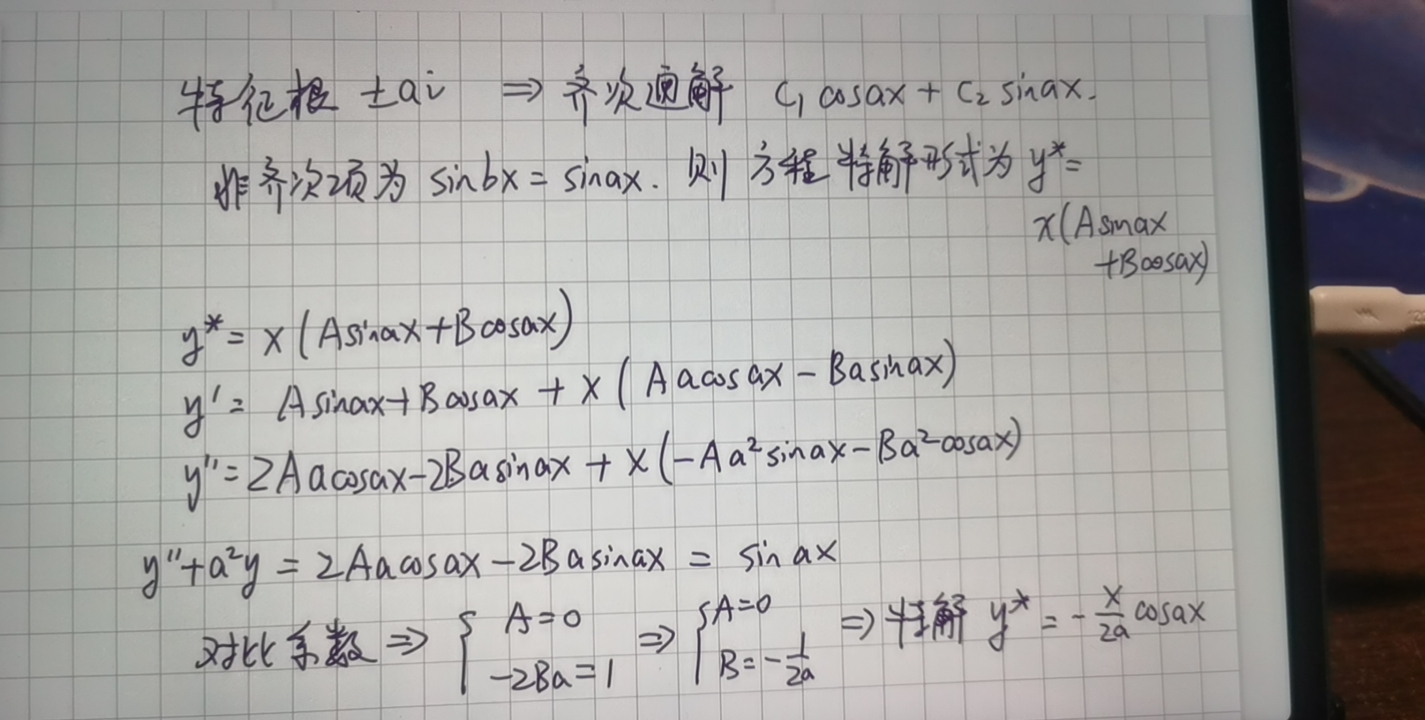 特征根 ±ai ⇒ 齐次通解 C₁cosax + C₂sinax.
非齐次项为 sinbx = sinax. 则 方程 特解形式为 y*=
x(Asinax
+Bcosax)
y*= x(Asinax+Bcosax)
y'= Asinax+Bcosax + x(Aacosax - Basinax)
y''= 2Aacosax-2Basinax + x(-Aa²sinax-Ba²cosax)
y''+a²y = 2Aacosax-2Basinax = sinax
对比系数 ⇒ { A=0 -2Ba=1 ⇒ { A=0 B=-1/2a ⇒ 特解 y* = -x/2a cosax